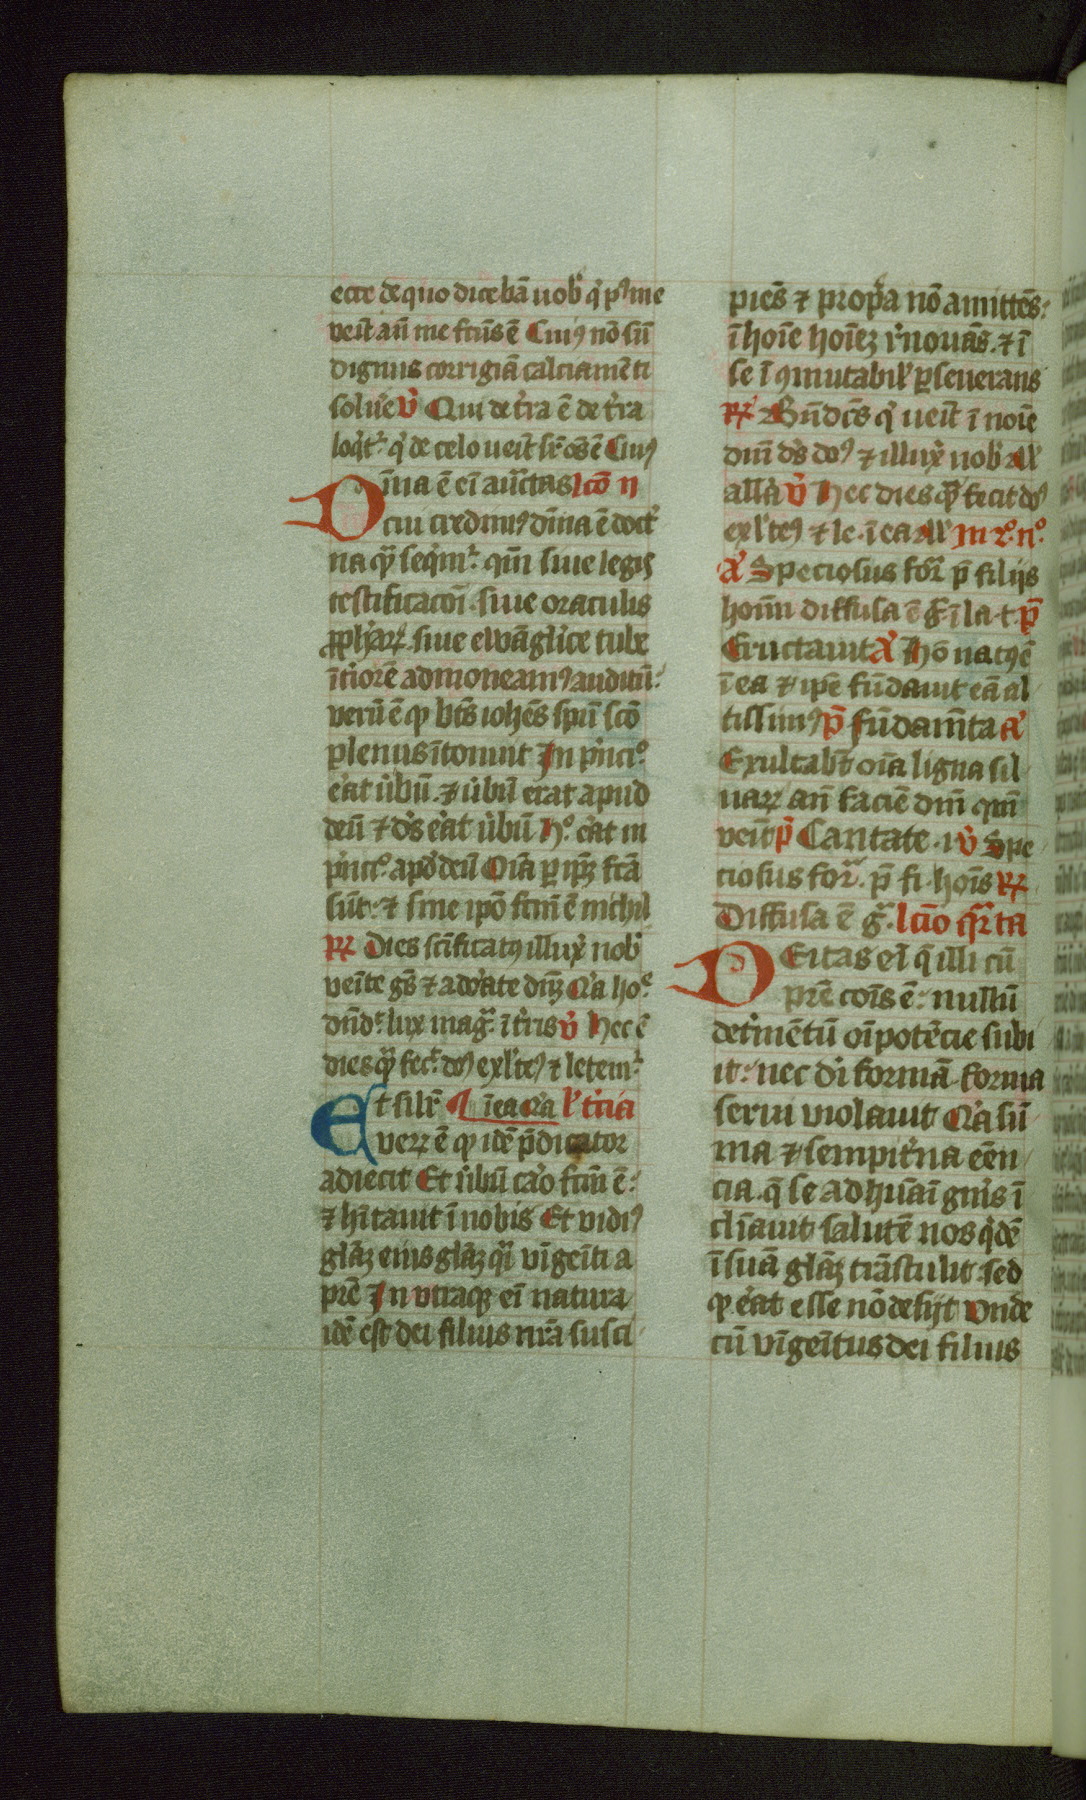 ecce de quo dicebā uob̕ q̕ pꝰ me
veīt an̄ me fc̄us ē Cuiꝰ nō sū
dignus corrigiā calciamēti
solue̕ ꝟ Qui de t̕ra ē de t̕ra
loq̕t᷑ q̕ de celo ueīt sr̄ oēs ē Cuiꝰ
Diuīa ē eī auc̄tas lcō ii
cui credimꝰ diīna ē doct̕
na qᷓ seq̕m᷑ qm̄ siue legis
testificacōī siue oraculis
ꝓph̕aꝝ siue ewāgl̕ice tube
īt̕iorē admoneamꝰ auditū
verū ē ꝙ bt̄s ioh̄es spū scō
plenus ītonuit In p̕nciᵒ
e̕at ūbū ⁊ ūbū erat apud
deū ⁊ dꝰs e̕at ūbū Hᵒ e̕at in
p̕ncᵒ apd̕ deū Oīa ꝑ ip̄ꝫ fc̄a
sūt ⁊ sine ipō fc̄m ē nichil
℟ Dies sc̄ificatꝰ illux̕ nob̕
veīte gēs ⁊ adorate dn̄ꝫ Q̕a hoᵉ
dn̄dᵗ lux magᷓ ī t̕ris ꝟ Hec ē
dies qᷓ fecᵗ dꝰ exl̕teꝰ ⁊ letem᷑
Et sil̕r ī ea Q̕a l̕ t̕cia
ueꝝ ē ꝙ idē p̄dicator
adiecit Et ūbū ca̕o fc̄m ē
⁊ hītauit ī nobis Et vidiꝰ
gl̄aꝫ eius gl̄aꝫ qͣi vīgeīti a
pr̄e In vtraqꝫ eī natura
idē est dei filius nr̄a susci
piēs ⁊ prop̕a nō amittēs
ī hoīe hoīeꝫ r̕nouās ⁊ ī
se īꝯmutabil̕ ꝑseuerans
℟ Bn̄dcs̄ q̕ ueīt ī noīe
dn̄i dꝰs doꝰ ⁊ illux̕ nob̕ all̕
all̕a ꝟ Hec dies qᷓ fecit doꝰ
exl̕teꝰ ⁊ le ī ea all̕ In 2ᵒ nᵒ
A̕ Speciosus for᷑ p̄ filijs
hoīm diffusa ē gᷓ ī la t p̄
Eructauit A̕ Hō natꝰ ē
ī ea ⁊ ip̄e fūdauit eā al
tissimꝰ p̄ fūdam̄ta A̕
Exultabt̄ oīa ligna sil
uaꝝ an̄ faciē dn̄i qm̄
veīt p̕ Cantate i ꝟ Spe
ciosus for᷑ p̄ fi hoīs ℟
Diffusa ē gᷓ lcīo qͣrta
Deitas eī q̄ illi cū
pr̄e coīs ē nullū
det̕mētū oīpotēcie subi
it nec di̕ formā forma
serui violauit Q̕a sū
ma ⁊ sempit̕na eēn
cia q̄ se ad hūāi gn̕is ī
clīauit salutē nos q̕dē
ī suā gl̄aꝫ trāstulit sed
ꝙ e̕at esse nō desijt Vnde
cū vīgeītus dei filius